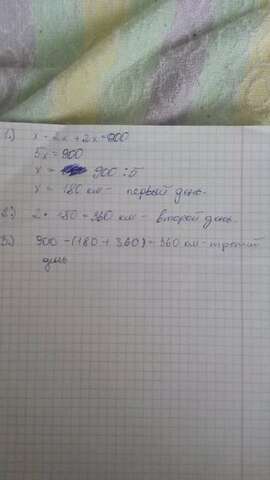 1.) x + 2x + 2x = 900
5x = 900
x = 900 : 5
x = 180 км - первый день.
2.) 2 • 180 = 360 км - второй день.
3.) 900 - (180 + 360) = 360 км - третий
день